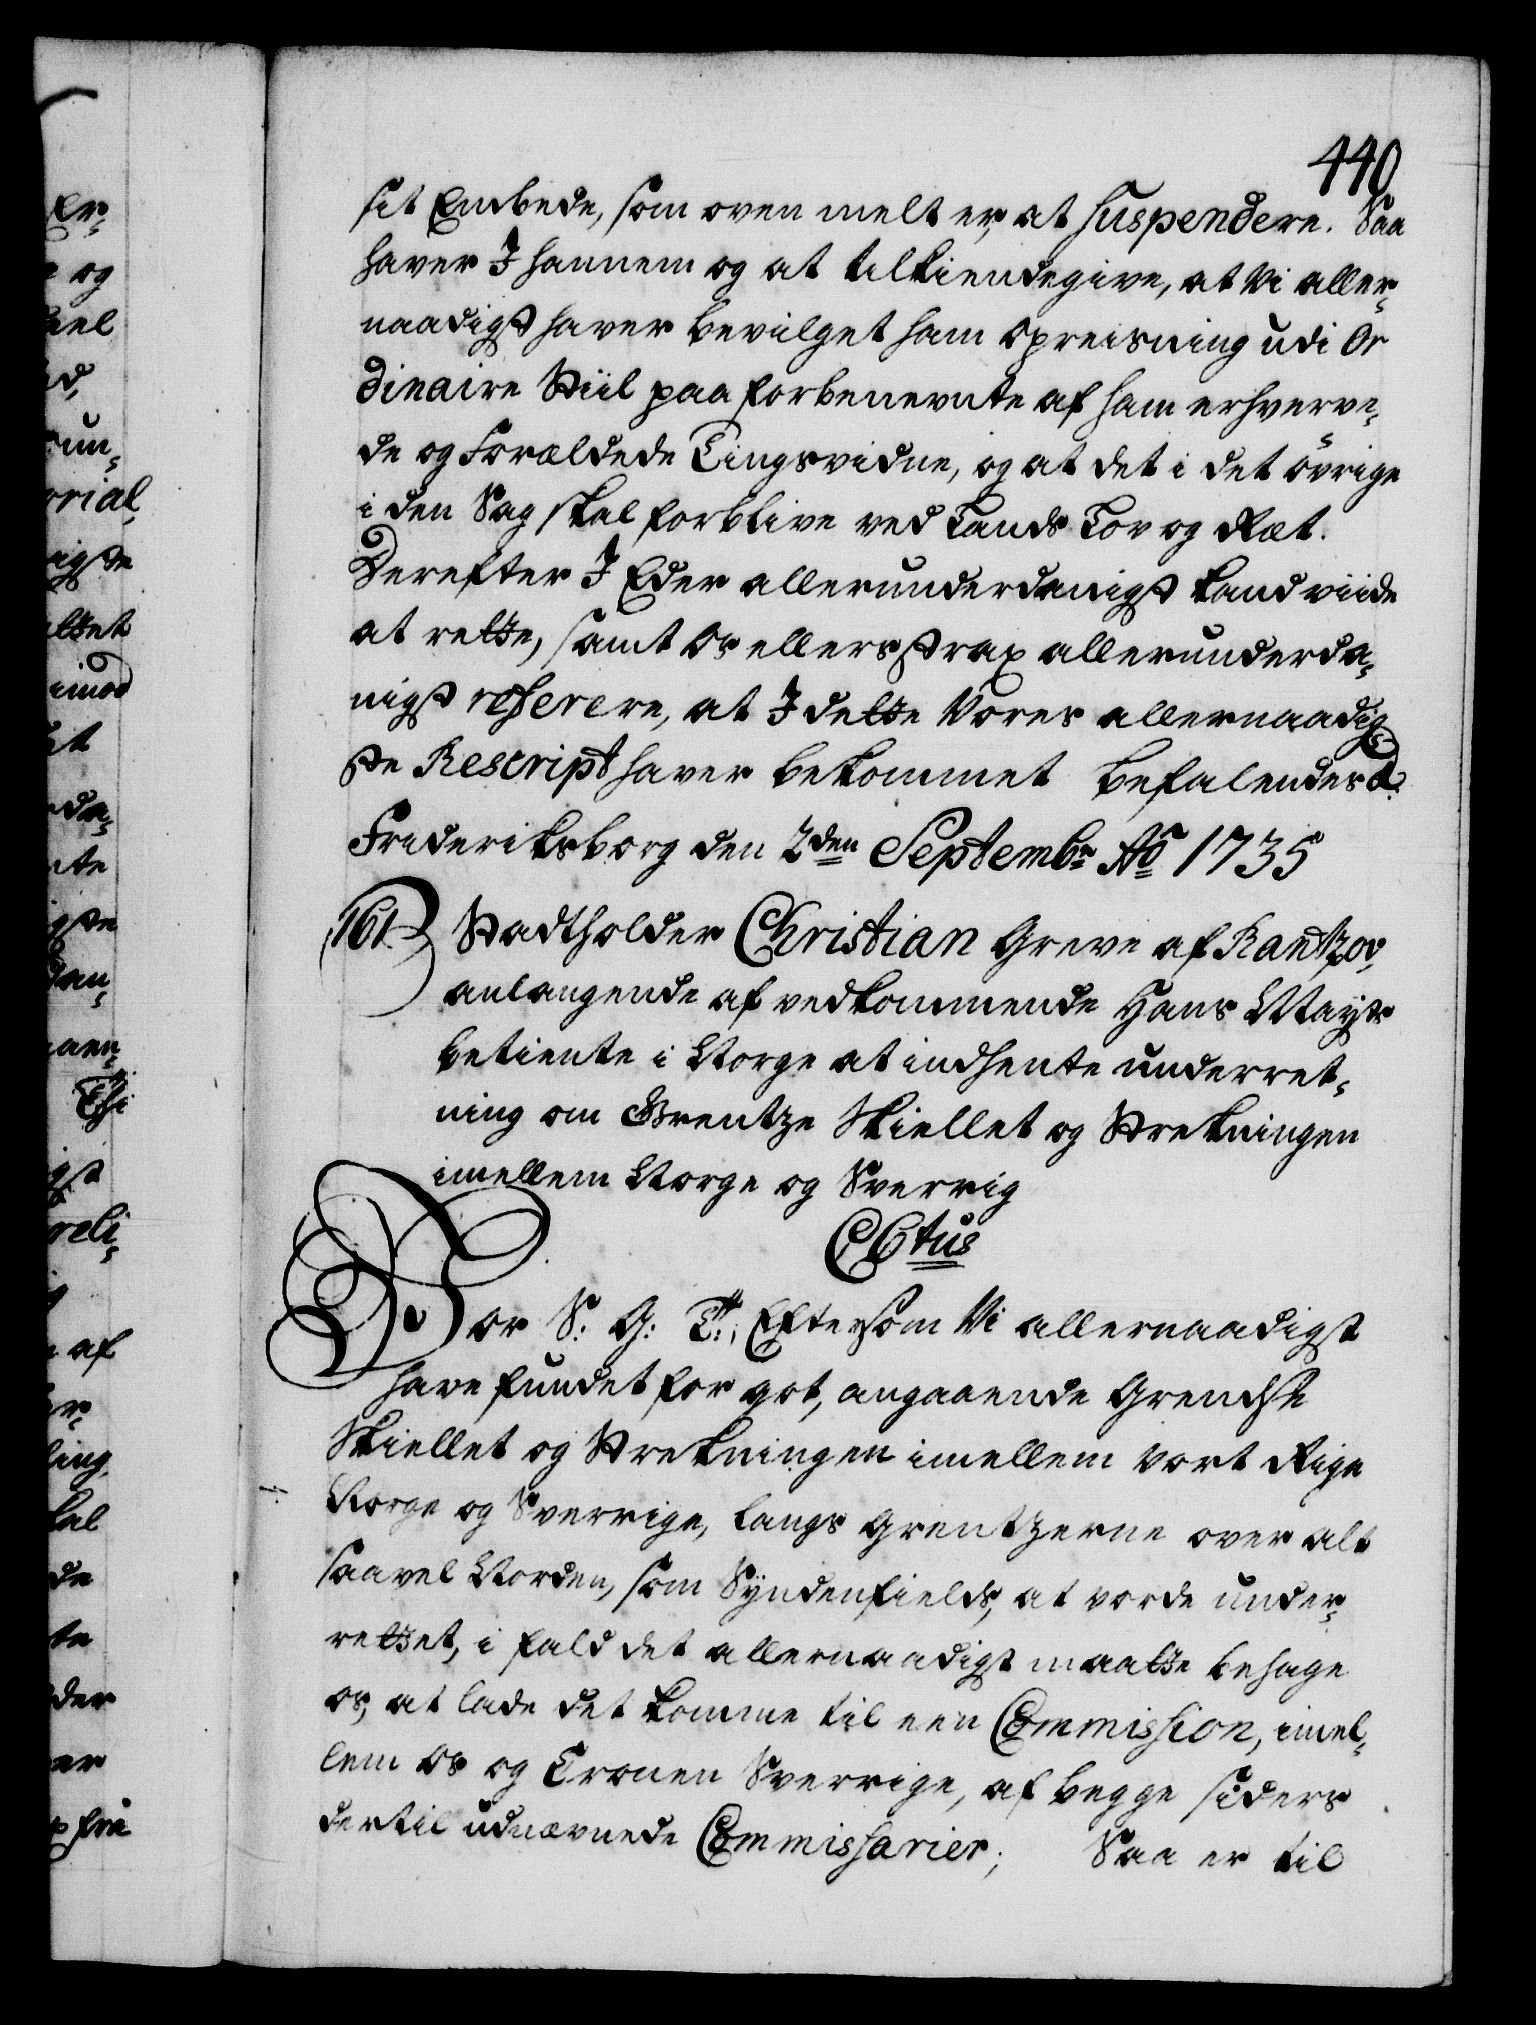 440
sit Embede, som oven melt er, at suspendere. Saa
haver I hannem og at tilkiendegive, at Vi aller-
naadigst haver bevilget ham Opreisning udi Or
dinaire Stiil paa forbenevnte af ham erhverve-
de og Forældede Tingsvidne, og at det i det övrige
i den Sag skal forblive ved Lands Lov og Ræt.
Derefter I Eder allerunderdanigst kand viide
at rette, samt Os ellers strax allerunderda-
nigst referere, at I dette Vores allernaadig
ste Rescript haver bekommet befalendes d.
Frideriksborg den 2den Septembr Ao 1735
161. Stadtholder Christian Greve af Rantzov,
anlangende af vedkommende Hans Mayts
betiente i Norge at indhente underret-
ning om Grentze Skiellet og Strekningen
imellem Norge og Sverrig
C6tus
Vor S: G: T:; Eftersom Vi allernaadigst
have fundet for got, angaaende Grendse
Skiellet og Strekningen imellem vort Rige
Norge og Sverrige, langs Grentzerne over alt
saavel Norden, som Syndenfields, at vorde under-
rettet, i fald det allernaadigst maatte behage
os, at lade det komme til een Commission, imel-
lem Os og Cronen Sverrige, af begge siders
dertil udnævnede Commissarier; Saa er til
Er-
og
eel
d,
un-
orial,
igste
ttet
imod
et
da-
nte
gste
an-
aen-
Thi
igst
reli-
af
er-
ling,
kal
de
te
der
er
fra